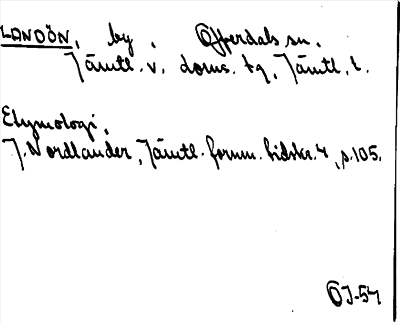 LANDÖN, by, Offerdals sn,
Jämtl. v. doms. tg, Jämtl. l.
Etymologi,
J. Nordlander, Jämtl. fornm. tidskr. 4, s. 105.
OJ-54